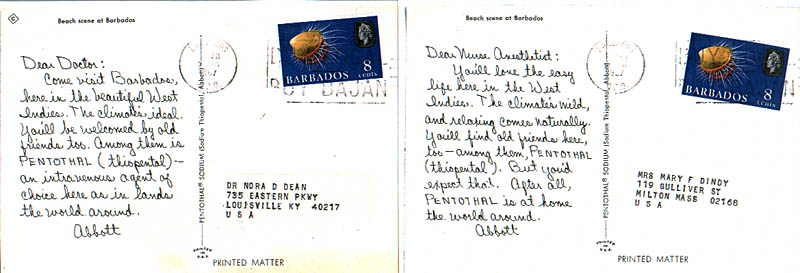 Beach scene at Barbados
Dear Doctor:
Come visit Barbados,
here in the beautiful West
Indies. The climate's ideal.
You'll be welcomed by old
friends too. Among them is
PENTOTHAL (thiopental)—
an intravenous agent of
choice here as in lands
the world around.
Abbott
PENTOTHAL® SODIUM (Sodium Thiopental, Abbott)
BARBADOS 8
cents
BUY BAJAN
DR NORA D DEAN
735 EASTERN PKWY
LOUISVILLE KY 40217
U S A
PRINTED IN U.S.A.
PRINTED MATTER
Beach scene at Barbados
Dear Nurse Anesthetist:
You'll love the easy
life here in the West
Indies. The climate's mild,
and relaxing comes naturally.
You'll find old friends here,
too—among them, PENTOTHAL
(thiopental). But you'd
expect that. After all,
PENTOTHAL is at home
the world around.
Abbott
PENTOTHAL® SODIUM (Sodium Thiopental, Abbott)
BARBADOS 8
cents
MRS MARY F DINDY
119 GULLIVER ST
MILTON MASS 02168
U S A
PRINTED IN U.S.A.
PRINTED MATTER